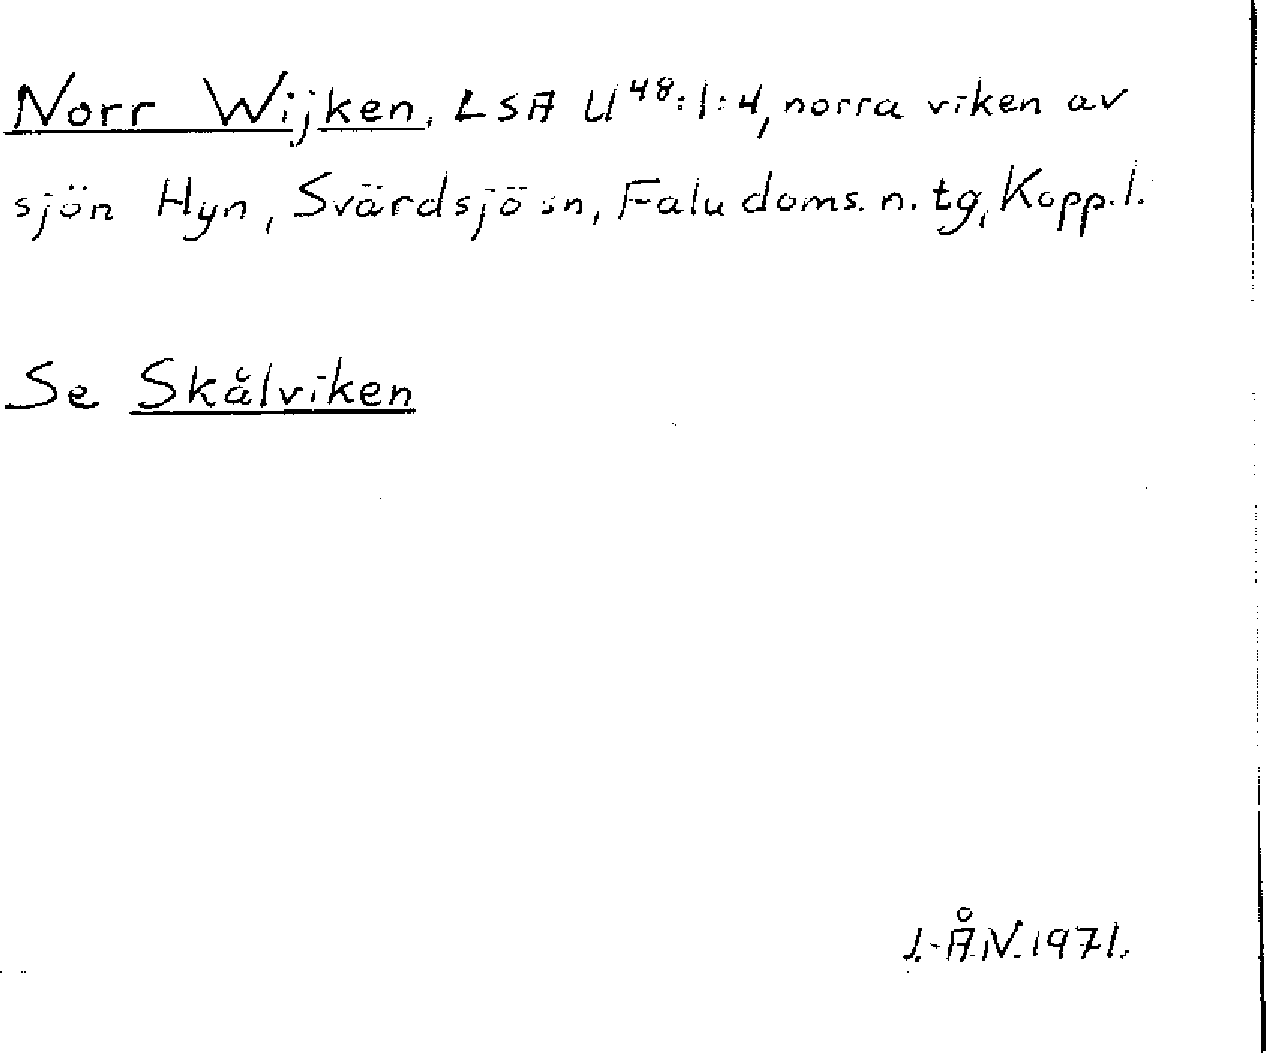 Norr Wijken, LSA U48:1:4, norra viken av
sjön Hyn, Svärdsjö sn, Falu doms. n. tg, Kopp. l.
Se Skålviken
J.-Å.N. 1971.